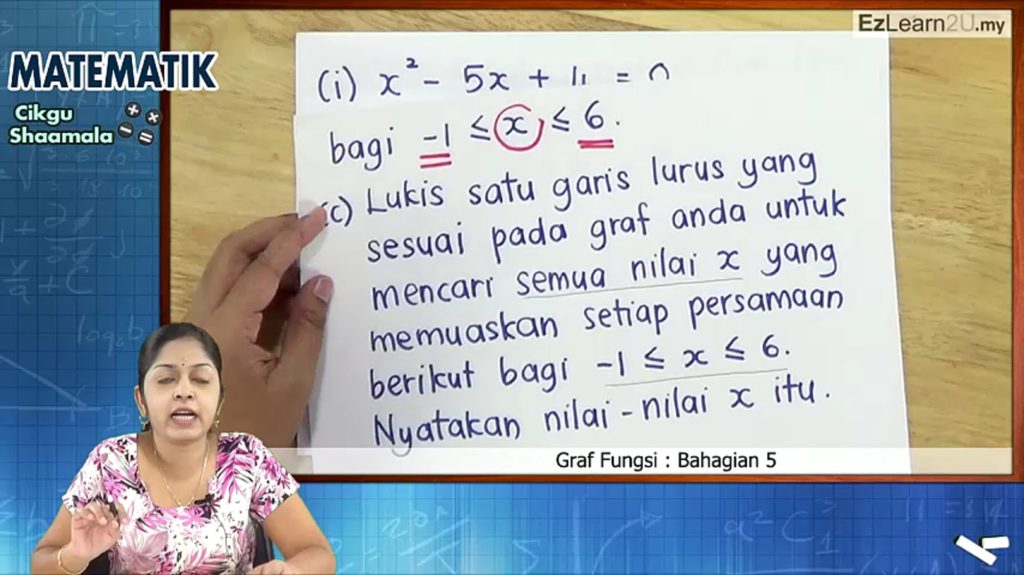 EzLearn2U.my
MATEMATIK
Cikgu
Shaamala
(i) x² - 5x +
bagi -1 ≤ x ≤ 6.
(c) Lukis satu garis lurus yang
sesuai pada graf anda untuk
mencari semua nilai x yang
memuaskan setiap persamaan
berikut bagi -1 ≤ x ≤ 6.
Nyatakan nilai-nilai x itu.
Graf Fungsi : Bahagian 5